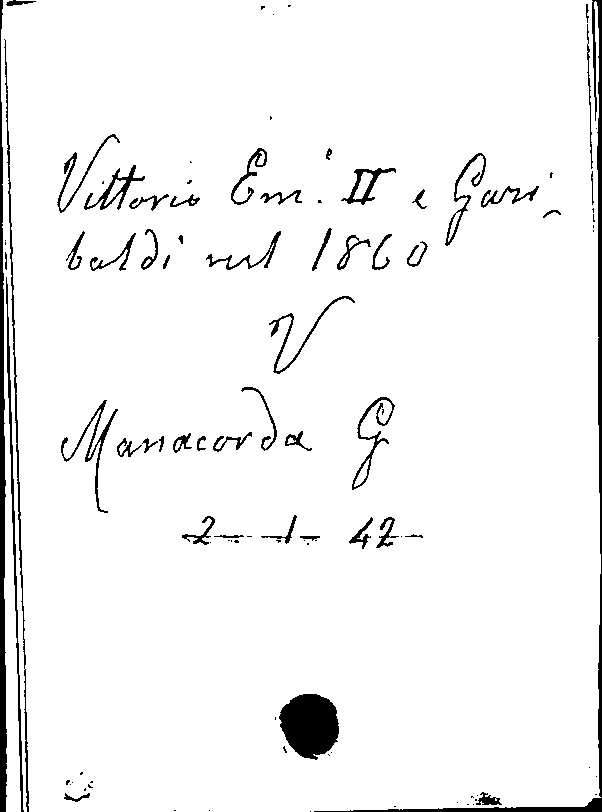 Vittorio Em.e II e Gari-
baldi nel 1860
V
Manacorda G
2 - 1 - 42